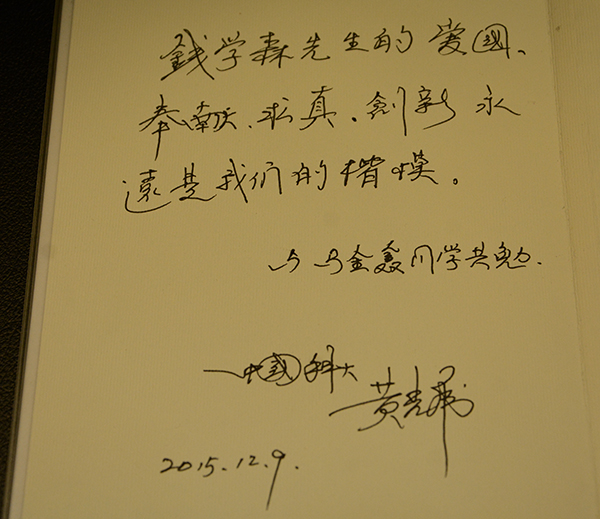 錢学森先生的爱國、
奉献、求真、创新 永
遠是我们的楷模。
与马金鑫同学共勉.
中國科大
黄吉虎
2015.12.9.